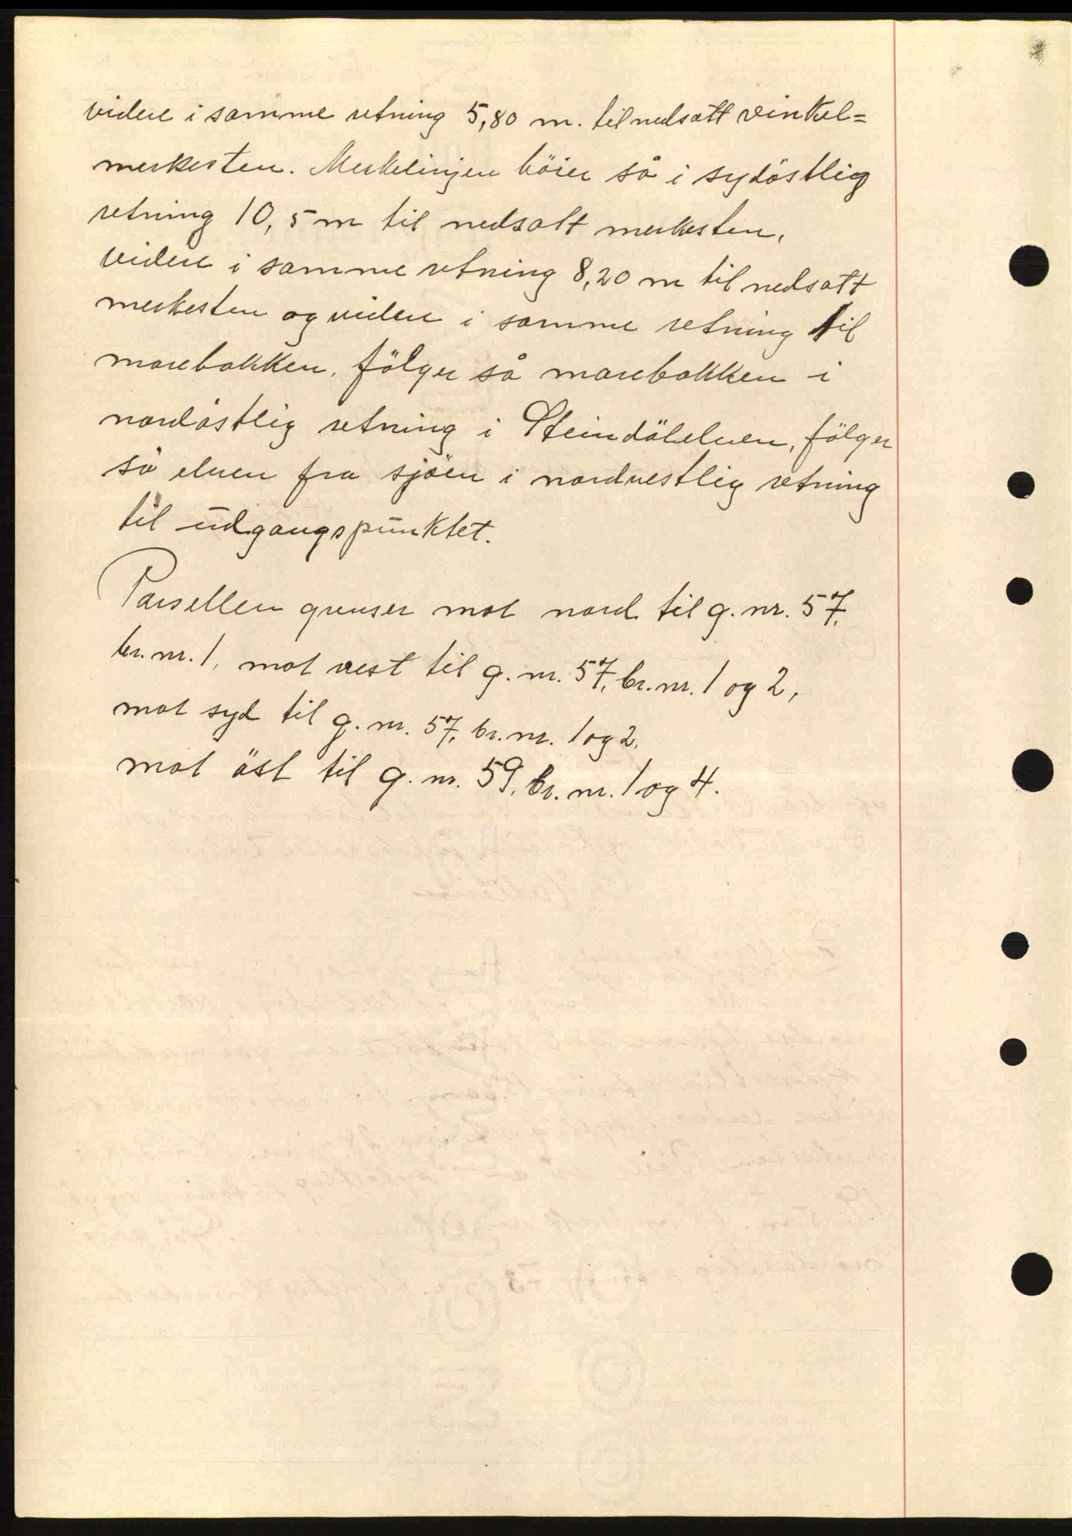 videre i samme retning 5,80 m. til nedsatt vinkel=
merkesten. Merkelinjen böier så i sydöstlig
retning 10,5 m til nedsatt merkesten,
videre i samme retning 8,20 m til nedsatt
merkesten og videre i samme retning til
marebakken, fölger så marebakken i
nordöstlig retning i Steindölelven, fölger
så elven fra sjöen i nordvestlig retning
til udgangspunktet.
Parsellen grenser mot nord til g. nr. 57,
br. nr. 1, mot vest til g. nr. 57, br. nr. 1 og 2,
mot syd til g. nr. 57, br. nr. 1 og 2,
mot öst til g. nr. 59, br. nr. 1 og 4.